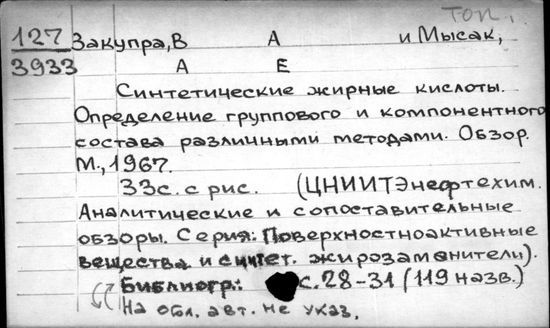 топ.
127 Закупра, В А и Мысак,
3933 А Е
Синтетические жирные кислоты.
Определение группового и компонентного
состава различными методами. Обзор.
М., 1967.
33с. с рис. (ЦНИИТЭнефтехим.
Аналитические и сопоставительные
обзоры. Серия: Поверхностноактивные
вещества и синтет. жирозаменители).
Библиогр: с.28-31 (119 назв.)
На обл. авт. не указ.